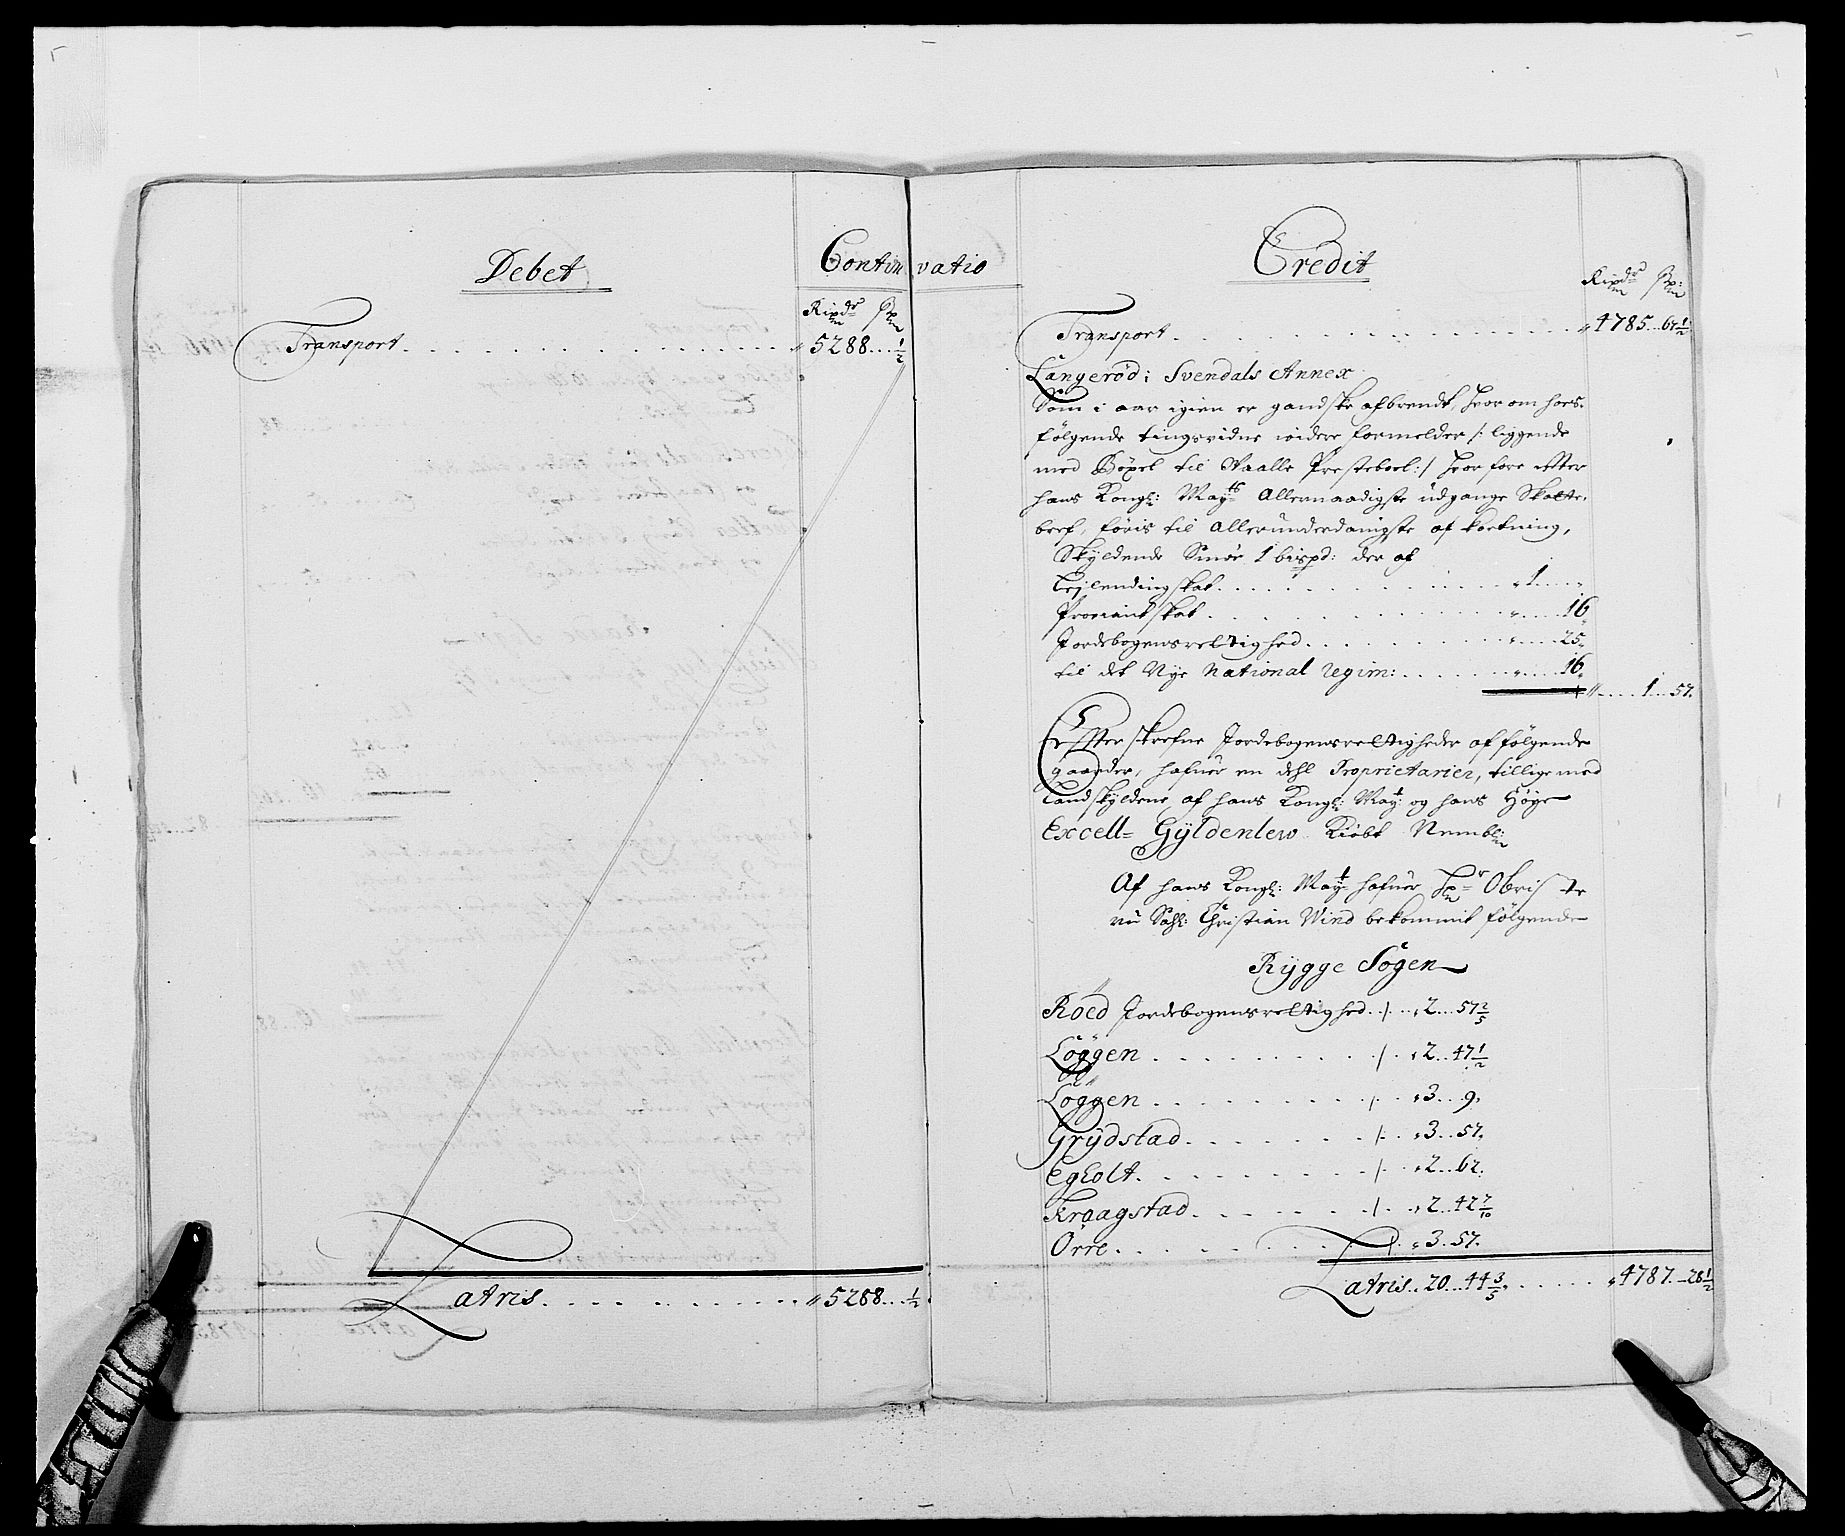 Debet
Contin vatio
Rixdr ß
Transport . . . . . . . . . . 5288 .. ½
Latris . . . . . . . . . . 5288 .. ½
Credit
Rixdr ß
Transport . . . . . . . . . . 4785 .. 67½
Langerød i Svendals Annex
Som i aar igien er gandske afbrendt, hvor om hoes-
følgende tingsvidne widere formelder /: liggende
med Bøxel til Waalle Presteboel :/ hvorfore efter
hans Kongl: Mayts Allernaadigste udgangne Skatte-
bref, føris til Allerunderdanigste afkortning,
Skyldende Smør 1 bispd: der af
Leylendingskat . . . . . . 1 . . .
Proviantskat . . . . . . 16
Jordebogensrettighed . . . . . . 25
til det Nye National regim: . . . . . . 16
1 .. 57.
Efterskrefne Jordebogensrettigheder af følgende
gaarder, hafuer en dehl Proprietarier, tillige med
Landskyldene af hans Kongl: Mayt og hans Høye
Excell= Gÿldenlew Kiøbt Nembl:
Af hans Kongl: Mayt hafuer Hr Obriste
nu Sahl: Christian Wind bekommit følgende
Rÿgge Sogen
Röed Jordebogensrettighed . / . . 2 .. 57⅖
Löggen . . . . . . / . . 2 .. 47½
Löggen . . . . . . / . . 3 .. 9.
Grÿdstad . . . . . . / . . 3 .. 57.
Egholt . . . . . . / . . 2 .. 62.
Kraagstad . . . . . . / . . 2 .. 42 7/10
Orre . . . . . . / . . 3 .. 57.
Latris .. 20 .. 44⅗ . . . . . . 4787 .. 28½